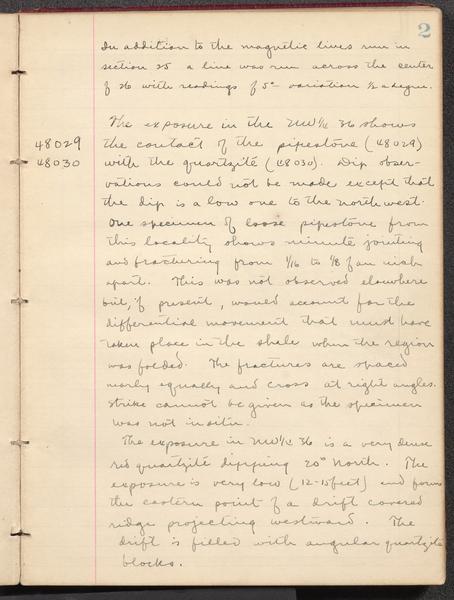 2
In addition to the magnetic lines run in
section 25 a line was run across the center
of 26 with readings of 5° - variation ½ a degree.
The exposure in the NW¼ 36 shows
48029 the contact of the pipestone (48029)
48030 with the quartzite (48030). Dip obser-
vations could not be made except that
the dip is a low one to the north west.
One specimen of loose pipestone from
this locality shows minute jointing
and fracturing from 1/16 to 1/8 of an inch
apart. This was not observed elsewhere
but, if present, would account for the
differential movement that must have
taken place in the shale when the region
was folded. The fractures are spaced
nearly equally and cross at right angles.
Strike cannot be given as the specimen
was not in situ.
The exposure in NW¼ 36 is a very dense
red quartzite dipping 20° North. The
exposure is very low (12-15 feet) and forms
the eastern point of a drift covered
ridge projecting westward. The
drift is filled with angular quartzite
blocks.